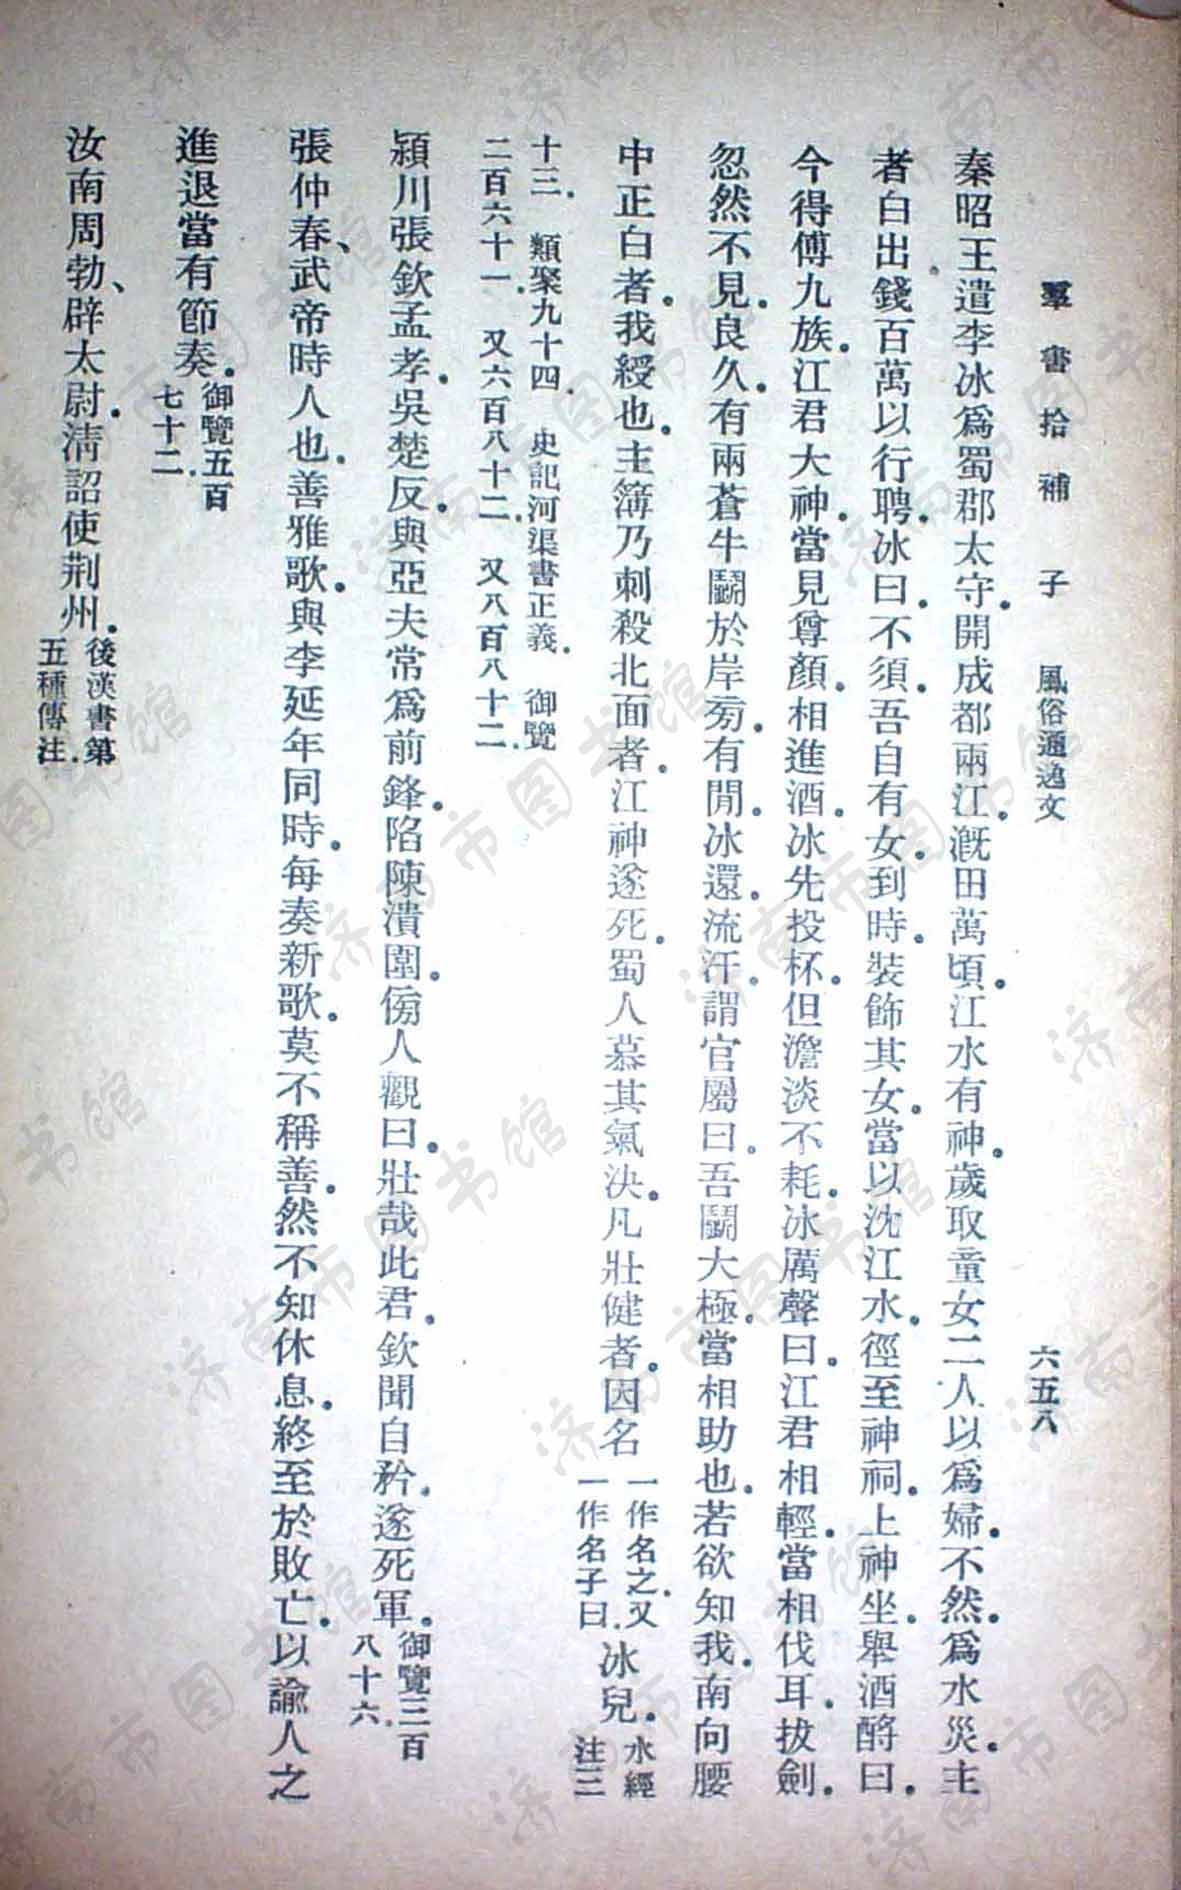 羣書拾補 子 風俗通逸文 六五八
秦昭王遣李冰爲蜀郡太守。開成都兩江。漑田萬頃。江水有神。歲取童女二人以爲婦。不然。爲水災。主
者白出錢百萬以行聘。冰曰。不須。吾自有女。到時。裝飾其女。當以沈江水。徑至神祠。上神坐。舉酒酹曰。
今得傅九族。江君大神。當見尊顏。相進酒。冰先投杯。但澹淡不耗。冰厲聲曰。江君相輕。當相伐耳。拔劍。
忽然不見。良久。有兩蒼牛鬬於岸旁。有閒。冰還。流汗。謂官屬曰。吾鬬大極。當相助也。若欲知我。南向腰
中正白者。我綬也。主簿乃刺殺北面者。江神遂死。蜀人慕其氣決。凡壯健者。因名一作名之。又一作名子曰。冰兒。水經注三
十三。 類聚九十四。 史記河渠書正義。 御覽
二百六十一。 又六百八十二。 又八百八十二。
潁川張欽孟孝。吳楚反。與亞夫常爲前鋒。陷陳潰圍。傍人觀曰。壯哉此君。欽聞自矜。遂死軍。御覽三百八十六。
張仲春、武帝時人也。善雅歌。與李延年同時。每奏新歌。莫不稱善。然不知休息。終至於敗亡。以諭人之
進退當有節奏。御覽五百七十二。
汝南周勃、辟太尉。淸詔使荆州。後漢書第五種傳注。
济南市图书馆